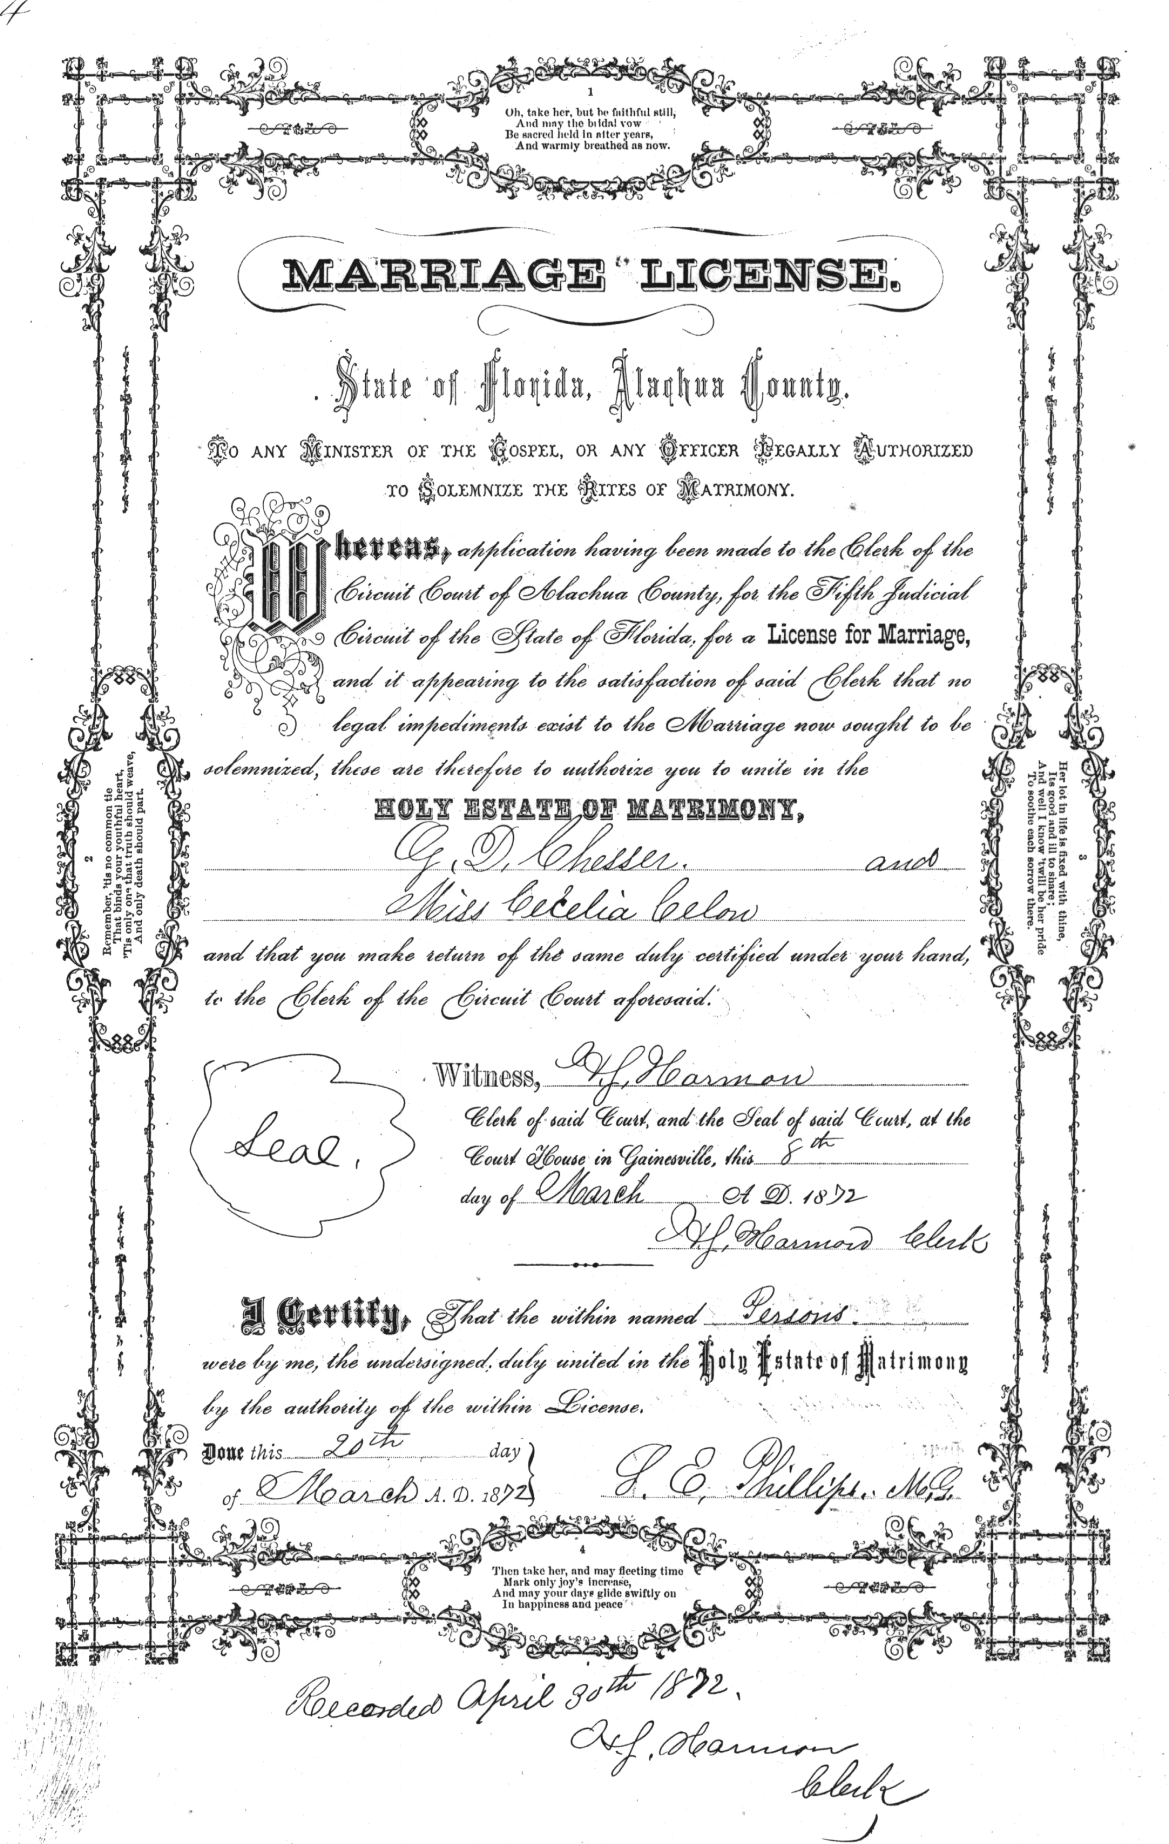 4
1
Oh, take her, but be faithful still,
And may the bridal vow
Be sacred held in after years,
And warmly breathed as now.
MARRIAGE LICENSE.
State of Florida, Alachua County.
To any Minister of the Gospel, or any Officer Legally Authorized
to Solemnize the Rites of Matrimony.
Whereas, application having been made to the Clerk of the
Circuit Court of Alachua County, for the Fifth Judicial
Circuit of the State of Florida, for a License for Marriage,
and it appearing to the satisfaction of said Clerk that no
legal impediments exist to the Marriage now sought to be
solemnized, these are therefore to authorize you to unite in the
HOLY ESTATE OF MATRIMONY,
G. D. Chesser. and
Miss Cecelia Celon
and that you make return of the same duly certified under your hand,
to the Clerk of the Circuit Court aforesaid.
Witness, H.J. Harmon
Clerk of said Court, and the Seal of said Court, at the
Court House in Gainesville, this 8th
day of March A. D. 1872
H.J. Harmon Clerk
Seal.
I Certify, That the within named Persons.
were by me, the undersigned, duly united in the Holy Estate of Matrimony
by the authority of the within License.
Done this 20th day
of March A. D. 1872
L. E. Phillips. M.G.
2
Remember, 'tis no common tie
That binds your youthful heart,
'Tis only one that truth should weave,
And only death should part.
3
Her lot in life is fixed with thine,
Its good and ill to share;
And well I know 'twill be her pride
To soothe each sorrow there.
4
Then take her, and may fleeting time
Mark only joy's increase,
And may your days glide swiftly on
In happiness and peace
Recorded April 30th 1872.
H.J. Harmon
Clerk